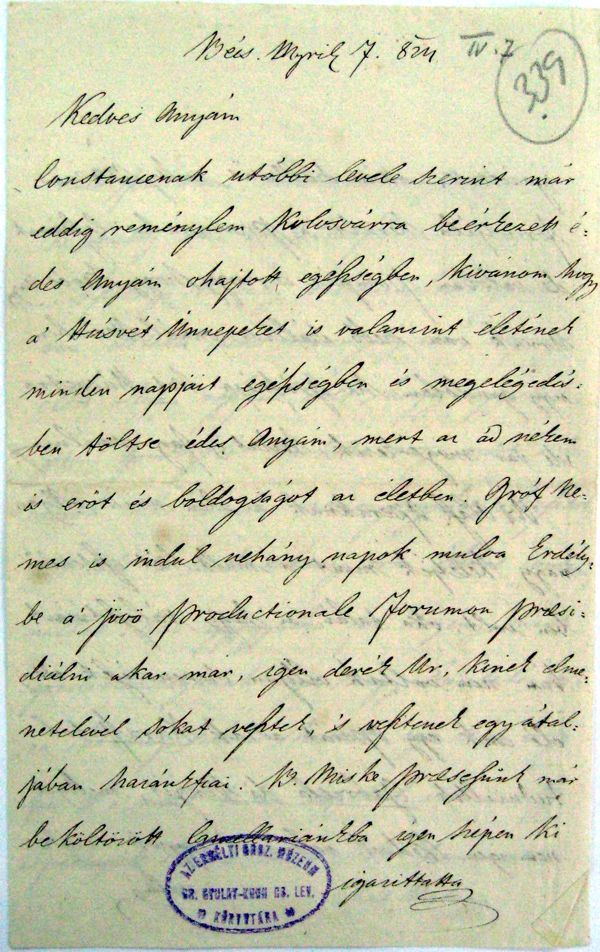 Bécs. Aprily 7. 871 IV. 7
339.
Kedves Anyám
Constancenak utóbbi levele szerint már
eddig reménylem Kolosvárra beérkezett é-
des Anyám ohajtott egéſségben, kivánom hogy
a' Húsvét Ünnepeket is valamint életének
minden napjait egéſségben és megelégedés-
ben töltse édes Anyám, mert az ád nékem
is erőt és boldogságot az életben. Gróf Ne-
mes is indul nehány napok mulva Erdély-
be á jövö productionale Forumon præsi-
diálni akar már, igen derék Ur, kinek elme-
netelével sokat veſtek, is veſtenek egyátal-
jában hazánkfiai. B. Miske præseſünk már
beköltözött Cancellariánkba igen szépen ki
igazittatta
AZ ERDÉLYI ORSZ. MÚZEUM
GR. GYULAY-KUUN GR. LEV.
KÖNYVTÁRA